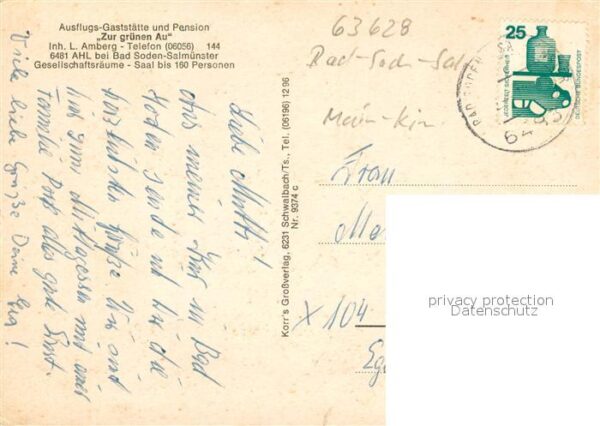 Ausflugs-Gaststätte und Pension
"Zur grünen Au"
Inh. L. Amberg - Telefon (06056) 144
6481 AHL bei Bad Soden-Salmünster
Gesellschaftsräume - Saal bis 160 Personen
Liebe Mutti!
Aus meiner Kur in Bad
Soden sende ich dir die
herzlichsten Grüße. Wir sind
hier zum Mittagessen mit einer
Familie
alles gute
Viele liebe Grüße Deine
Korr's Großverlag, 6231 Schwalbach/Ts., Tel. (06196) 12 96
Nr. 9374 c
63628
Bad-Soden-Sal
Main-Kin
25
JEDERZEIT SICHERHEIT
DEUTSCHE BUNDESPOST
BAD SODEN
Frau
X 104
privacy protection
Datenschutz